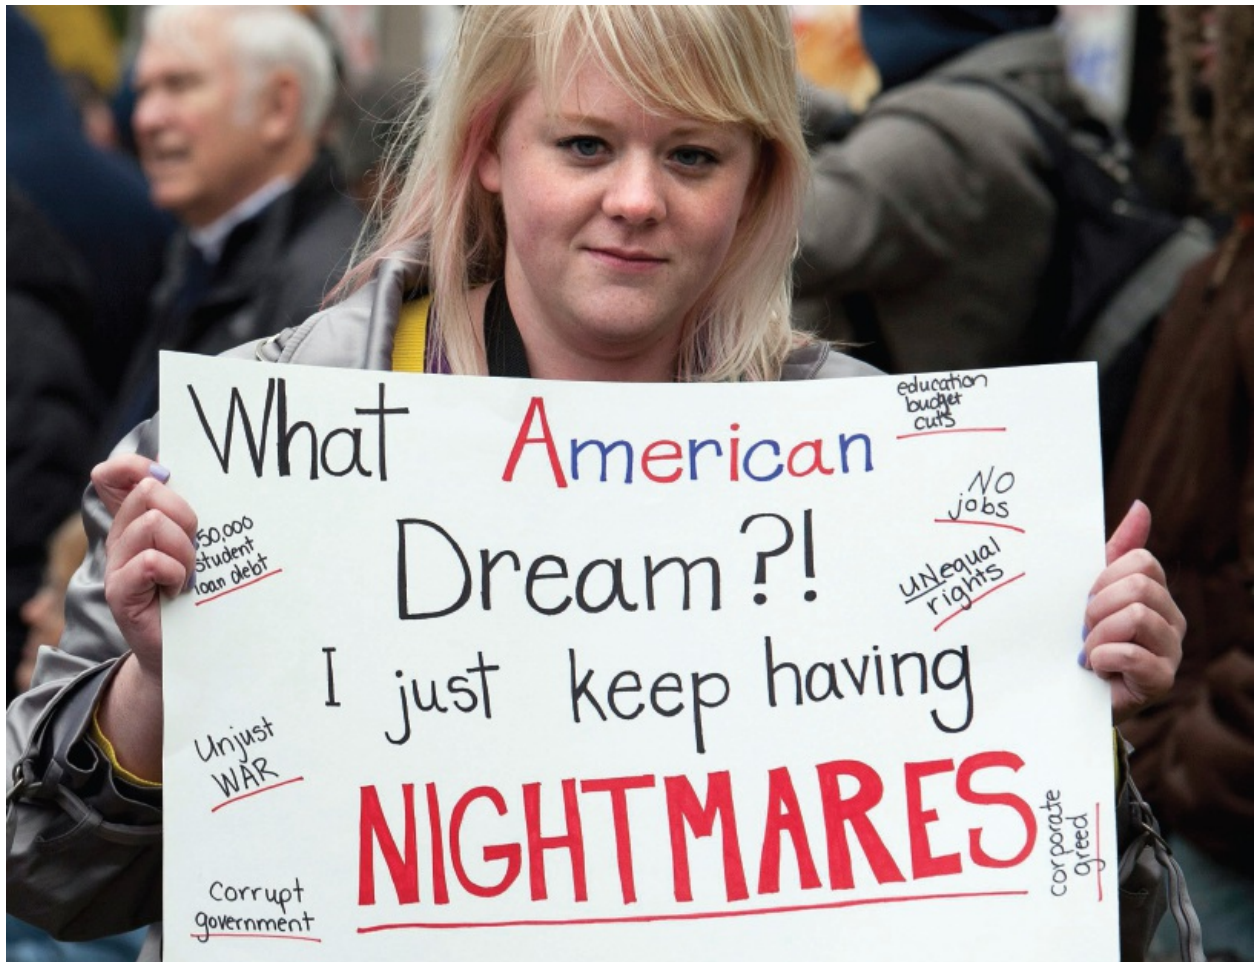 What American
Dream?!
I just keep having
NIGHTMARES
education
budget
cuts
NO
jobs
UNequal
rights
corporate
greed
50,000
student
loan debt
Unjust
WAR
corrupt
government